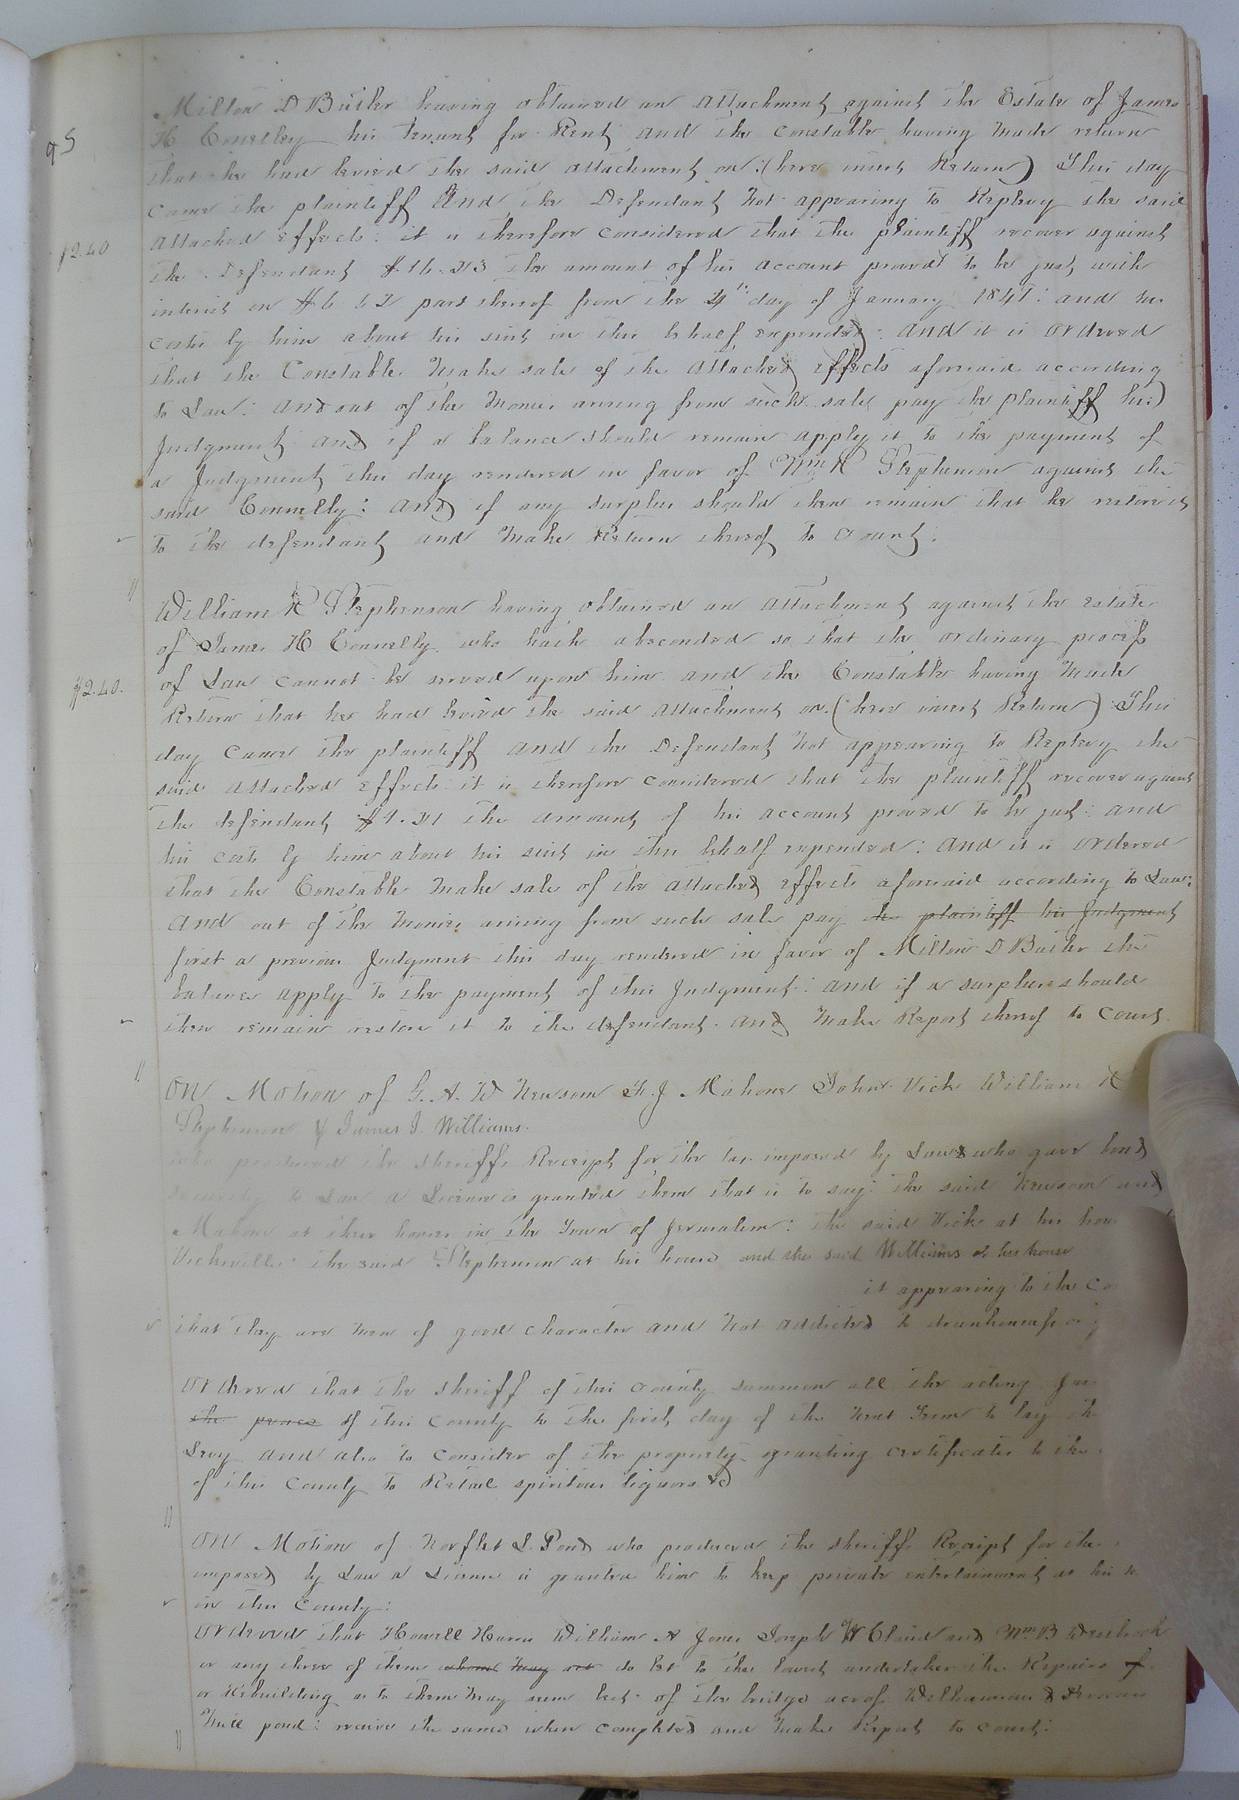 Milton D Butler having obtained an attachment against the Estate of James
95
H Connelley his Tenant for Rent and the Constable having made return
that he had levied the said attachment on (here insert Return) This day
came the plaintiff And the Defendant not appearing to Replevy the said
$2.40
attached effects: it is therefore considered that the plaintiff recover against
the Defendant $16.23 the amount of his account proved to be just with
interest on $6 62 part thereof from the 4th day of January 1841: and his
costs by him about his suit in this behalf expended: and it is ordered
that the Constable make sale of the attached effects aforesaid according
to Law: and out of the monies arising from such sale pay the plaintiff his
Judgment and if a balance should remain apply it to the payment of
a Judgment this day rendered in favor of Wm R Stephenson against the
said Connelly: and if any surplus should then remain that he restore it
to the defendant and make Return thereof to Court.
William R Stephenson having obtained an attachment against the estate
of James H Connelly who hath absconded so that the ordinary process
of Law cannot be served upon him and the Constable having made
$2.40.
Return that he had levied the said attachment on (here insert Return) This
day came the plaintiff and the Defendant not appearing to Replevy the
said attached effects it is therefore considered that the plaintiff recover against
the defendant $9.21 the amount of his account proved to be just: and
his costs by him about his suit in this behalf expended: and it is ordered
that the Constable make sale of the attached effects aforesaid according to Law:
and out of the monies arising from such sale pay the plaintiff his Judgment
first a previous Judgment this day rendered in favor of Milton D Butler the
balance apply to the payment of this Judgment: and if a surplus should
then remain restore it to the defendant and make Report thereof to Court.
On Motion of G. A. W Newsom J Mahone John Vick William R
Stephenson & James J. Williams
who produced the sheriffs Receipt for the tax imposed by Law & who gave bond
security to Law a License is granted them that is to say: the said Newsom and
Mahone at their houses in the Town of Jerusalem: the said Vick at his
Vicksville: the said Stephenson at his house and the said Williams at his house
it appearing to the
that they are men of good character and not addicted to drunkenness or
Ordered that the sheriff of this County summon all the acting
the peace of this County to the first day of the next Term to lay the
Levy and also to consider of the propriety granting certificates to the
of this County to Retail spiritous liquors &c
On Motion of Norflet L Pond who produced the sheriffs Receipt for the
imposed by Law a License is granted him to keep private entertainment at his
in this County:
Ordered that Howell Harris William A Jones Joseph W Claud and Wm B Westbrook
or any three of them whom may act do let to the lowest undertaker the Repairs of
or Rebuilding as to them may seem best of the bridge across Williamson &
Mill pond: receive the same when completed and make Report to Court: